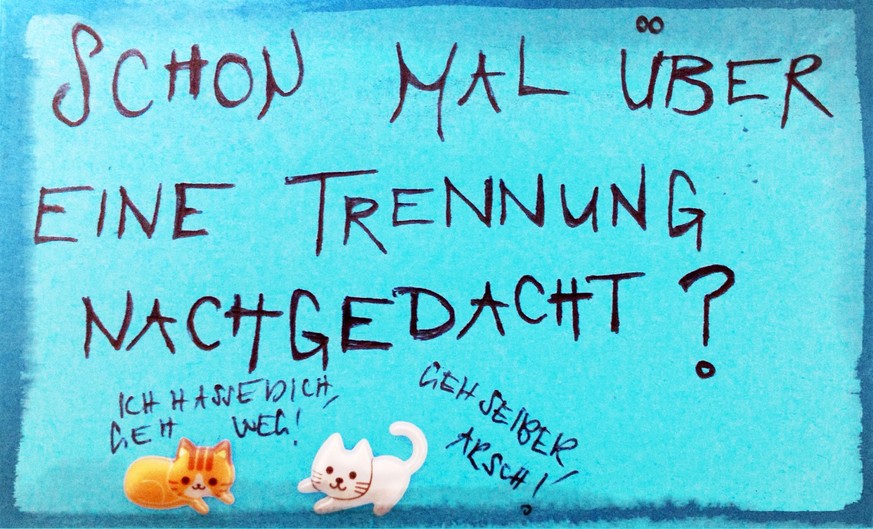 SCHON MAL ÜBER
EINE TRENNUNG
NACHGEDACHT?
ICH HASSE DICH,
GEH WEG!
GEH SELBER
ARSCH!